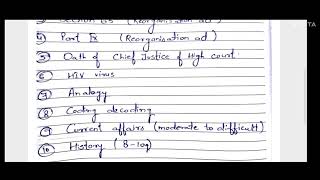 ③ Section 65 (Reorganisation act)
④ Part IX (Reorganisation act)
⑤ Oath of Chief Justice of High court.
⑥ HIV virus
⑦ Analogy
⑧ Coding decoding
⑨ Current affairs (moderate to difficult)
⑩ History (8-10q)
TA